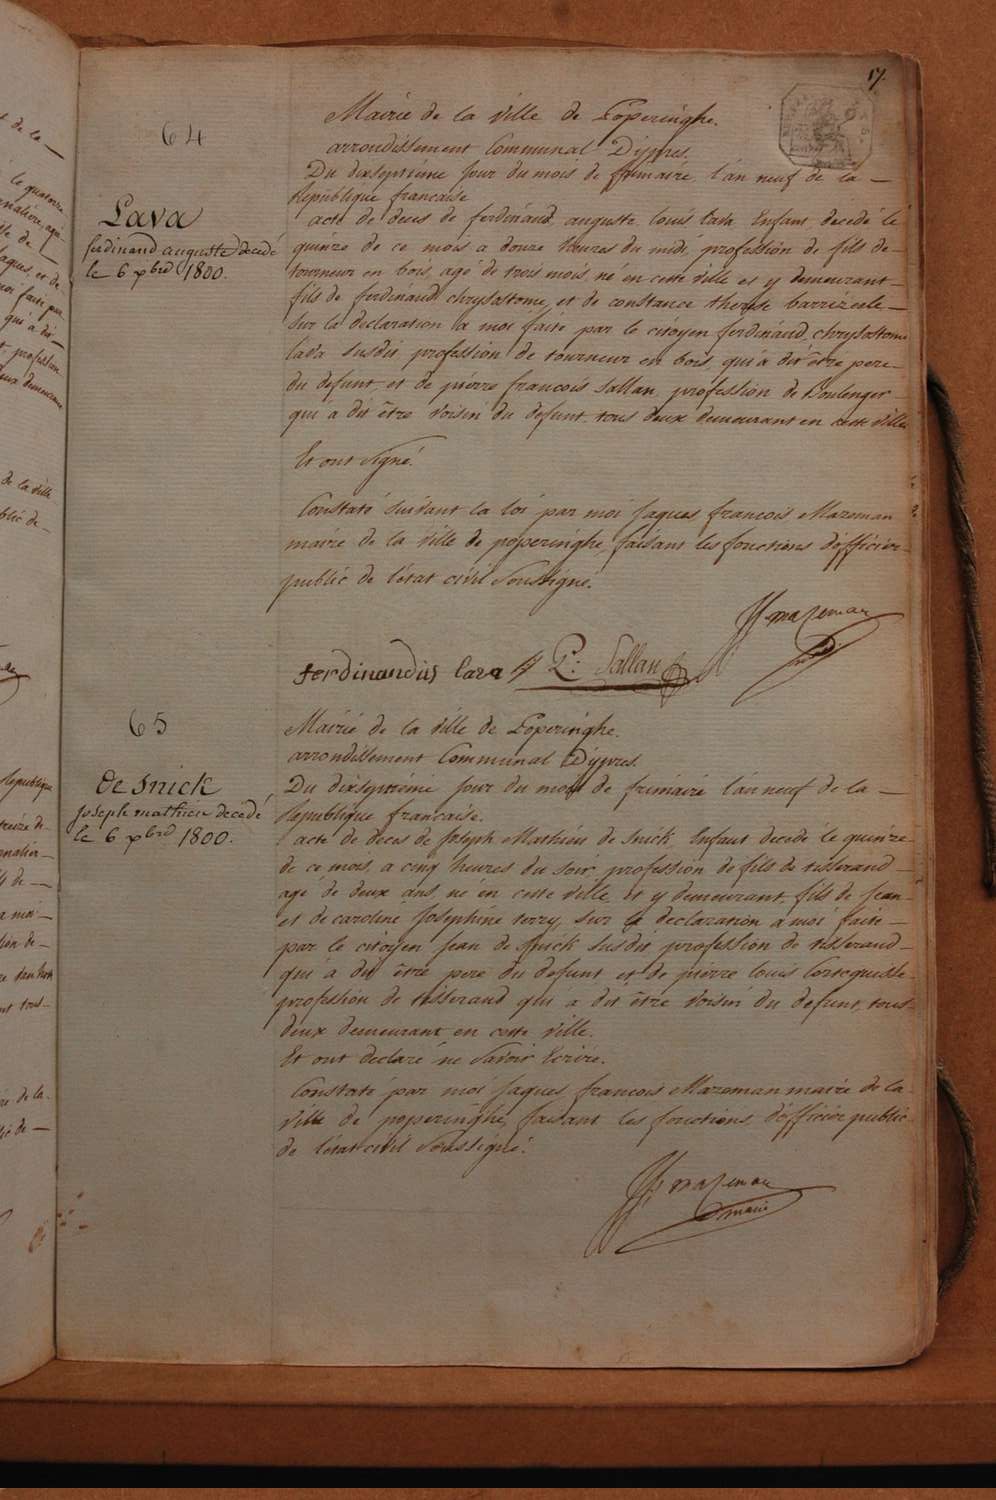 17.
64
Lava
ferdinand auguste decedé
le 6 xbre 1800.
Mairie de la Ville de Poperinghe.
arrondissement Communal D'ypres.
Du dixseptième jour du mois de frimaire, l'an neuf de la
République francaise
acte de decés de ferdinand, auguste, louis Lava, Enfant, decedé le
quinze de ce mois a douze heures du midi, profession de fils de
tourneur en bois, agé de trois mois, né en cette ville et y demeurant
fils de ferdinand chrysostome, et de constance therese barrizeele
sur la declaration a moi faite par le citoyen ferdinand, chrysostome
lava susdit profession de tourneur en bois, qui a dit être pere
du defunt, et de piérre francois Sallan, profession de Boulenger
qui a dit être voisin du defunt, tous deux demeurant en cette ville
Et ont signé.
Constaté suivant la loi par moi Jaques francois Mazeman
maire de la ville de poperinghe, faisant les fonctions d'officier
public de l'état civil Soussigné.
JF mazeman
ferdinandus lava P: Sallan
65
de Snick
Joseph mathieu decedé
le 6 xbre 1800.
Mairie de la Ville de Poperinghe.
arrondissement Communal D'ypres.
Du dixseptième jour du mois de frimaire l'an neuf de la
République francaise.
acte de decés de Joseph Mathieu de Snick, Enfant decedé le quinze
de ce mois, a cinq heures du soir, profession de fils de tisserand
agé de deux ans, né en cette ville, et y demeurant, fils de Jean
et de caroline Josephine terry, sur la declaration a moi faite
par le citoyen Jean de Snick susdit profession de tisserand
qui a dit être pere du defunt, et de piérre louis
profession de tisserand qui a dit être voisin du defunt, tous
deux demeurant en cette ville.
Et ont declaré ne savoir Ecrire.
Constaté par moi Jaques francois Mazeman maire de la
ville de poperinghe, faisant les fonctions d'officier public
de l'état civil Soussigné.
JF mazeman
maire